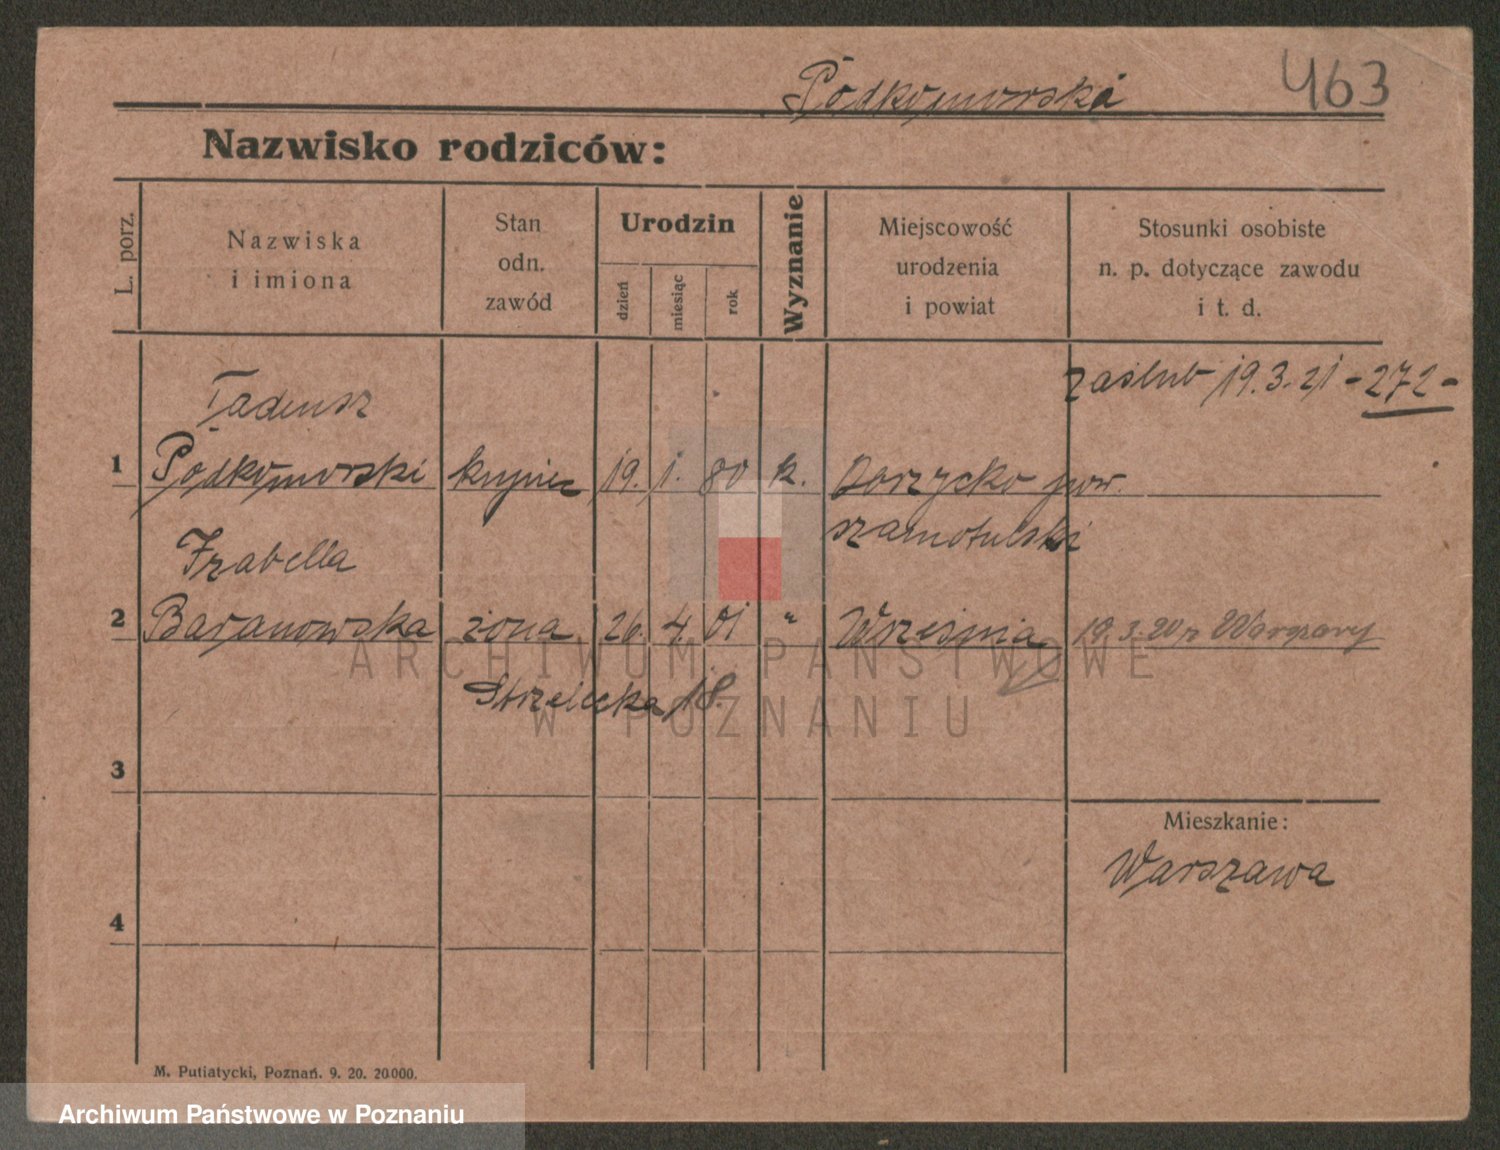 463
Podkomorska
Nazwisko rodziców:
L. porz.
Nazwiska
i imiona
Stan
odn.
zawód
Urodzin
dzień
miesiąc
rok
Wyznanie
Miejscowość
urodzenia
i powiat
Stosunki osobiste
n. p. dotyczące zawodu
i t. d.
zaślub 19.3.21 - 272 -
Tadeusz
1 Podkomorski kupiec 19. 1. 80 k. pow.
szamotulski
Izabella
2 Baranowska żona 26. 4. 01 " Września 19.3.20 z Warszawy
Strzelecka 18.
3
Mieszkanie:
Warszawa
4
M. Putiatycki, Poznań. 9. 20. 20000.
ARCHIWUM PAŃSTWOWE
W POZNANIU
Archiwum Państwowe w Poznaniu